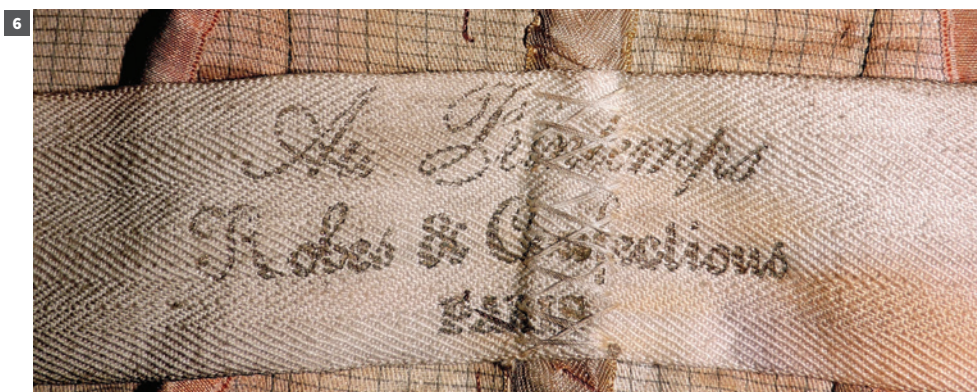 6
Au Printemps
Robes & Confections
PARIS